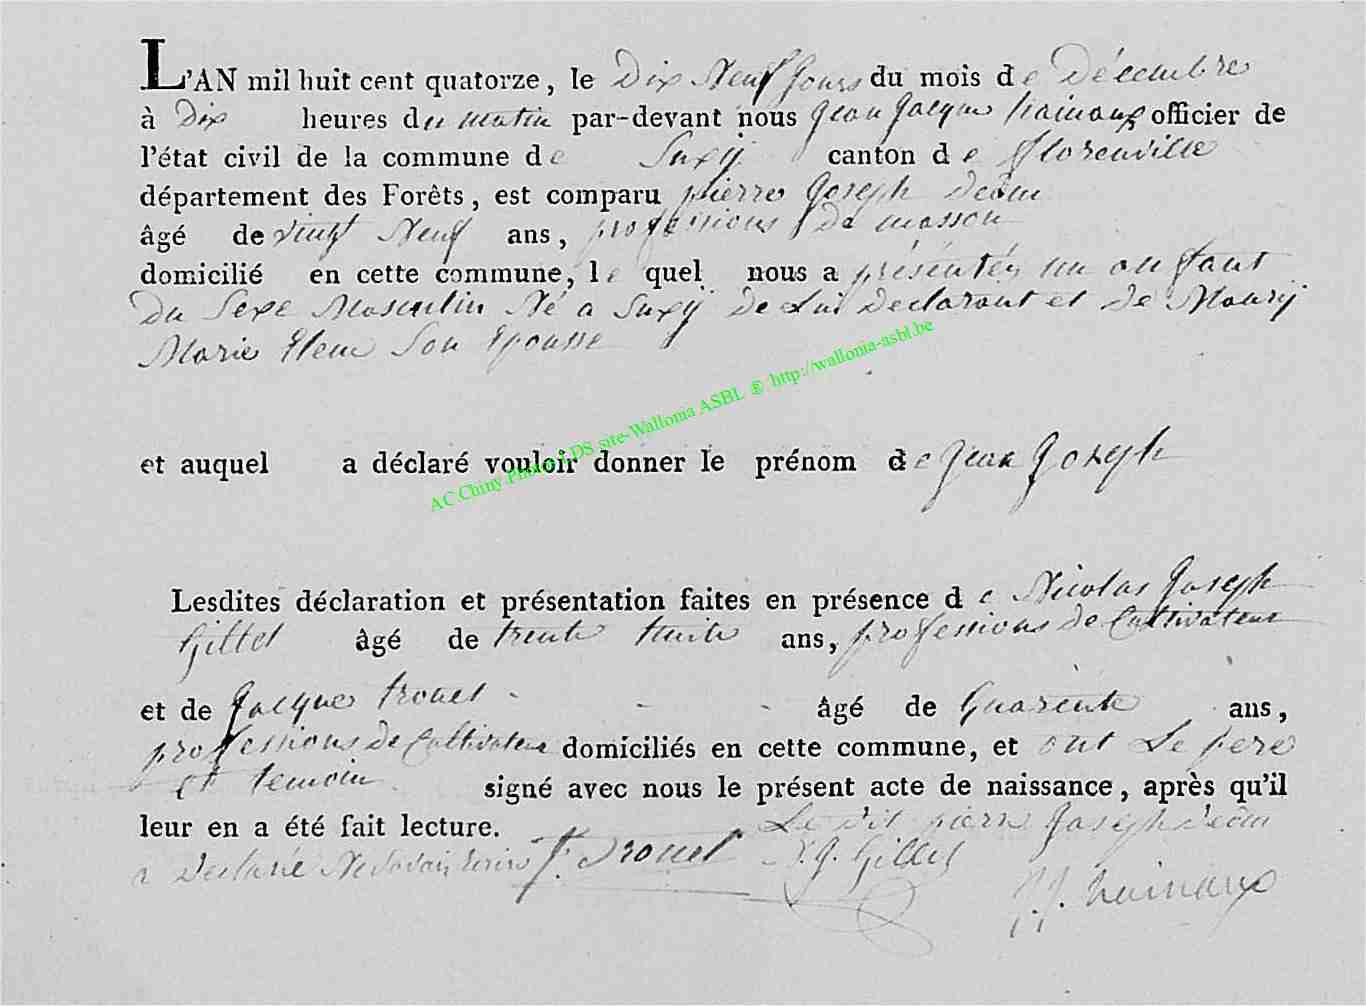 L'AN mil huit cent quatorze, le Dix Neuf Jours du mois de Décembre
à Dix heures du matin par-devant nous Jean Jacque hainaux officier de
l'état civil de la commune de Suxÿ canton de florenville
département des Forêts, est comparu pierre Joseph
âgé de vingt Neuf ans, professions De masson
domicilié en cette commune, le quel nous a présentéz un anfant
Du Sexe Masculin Né a Suxÿ De Lui Declarant et De
Marie Son Epousse
AC.Chiny.Photo LDS site-Wallonia ASBL ® http://wallonia-asbl.be
et auquel a déclaré vouloir donner le prénom de Jean Joseph
Lesdites déclaration et présentation faites en présence de Nicolas Joseph
Gillet âgé de trente huite ans, professions De Cultivateur
et de Jacque trouet âgé de Quarente ans,
professions De Cultivateur domiciliés en cette commune, et ont Le pere
et temoin signé avec nous le présent acte de naissance, après qu'il
leur en a été fait lecture. Le Dit pierre Joseph
a Declaré J. Drouet N. J. Gillet
J. J. hainaux